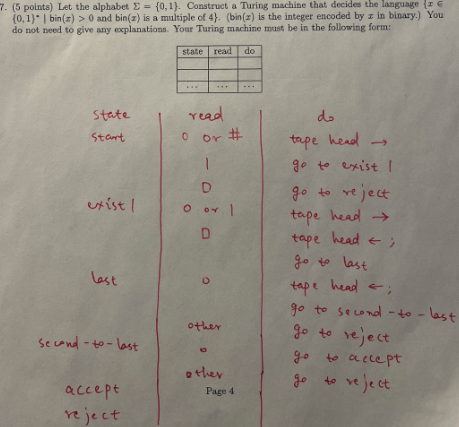 7. (5 points) Let the alphabet Σ = {0,1}. Construct a Turing machine that decides the language {x ∈
{0,1}* | bin(x) > 0 and bin(x) is a multiple of 4}. (bin(x) is the integer encoded by x in binary.) You
do not need to give any explanations. Your Turing machine must be in the following form:
state read do
... ... ...
state read do
start 0 or # tape head →
1 go to exist 1
□ go to reject
exist 1 0 or 1 tape head →
□ tape head ← ;
go to last
last 0 tape head ← ;
go to second-to-last
other go to reject
second-to-last 0 go to accept
other go to reject
accept Page 4
reject